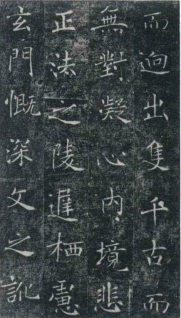 而逈出隻千古而
無對凝心內境悲
正法之陵遲栖慮
玄門慨深文之訛